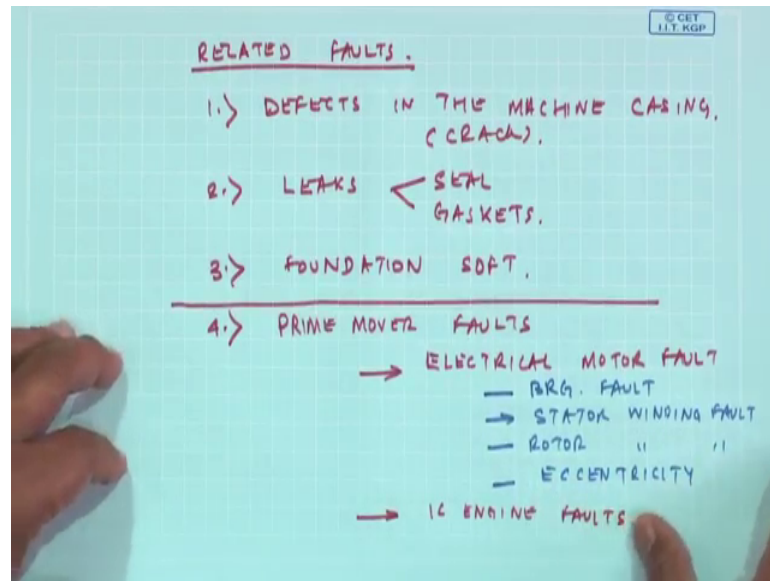 © CET
I.I.T. KGP
RELATED FAULTS.
1.) DEFECTS IN THE MACHINE CASING.
(CRACK).
2.) LEAKS < SEAL
GASKETS.
3.) FOUNDATION SOFT.
4.) PRIME MOVER FAULTS
→ ELECTRICAL MOTOR FAULT
— BRG. FAULT
→ STATOR WINDING FAULT
— ROTOR " "
— ECCENTRICITY
→ IC ENGINE FAULTS